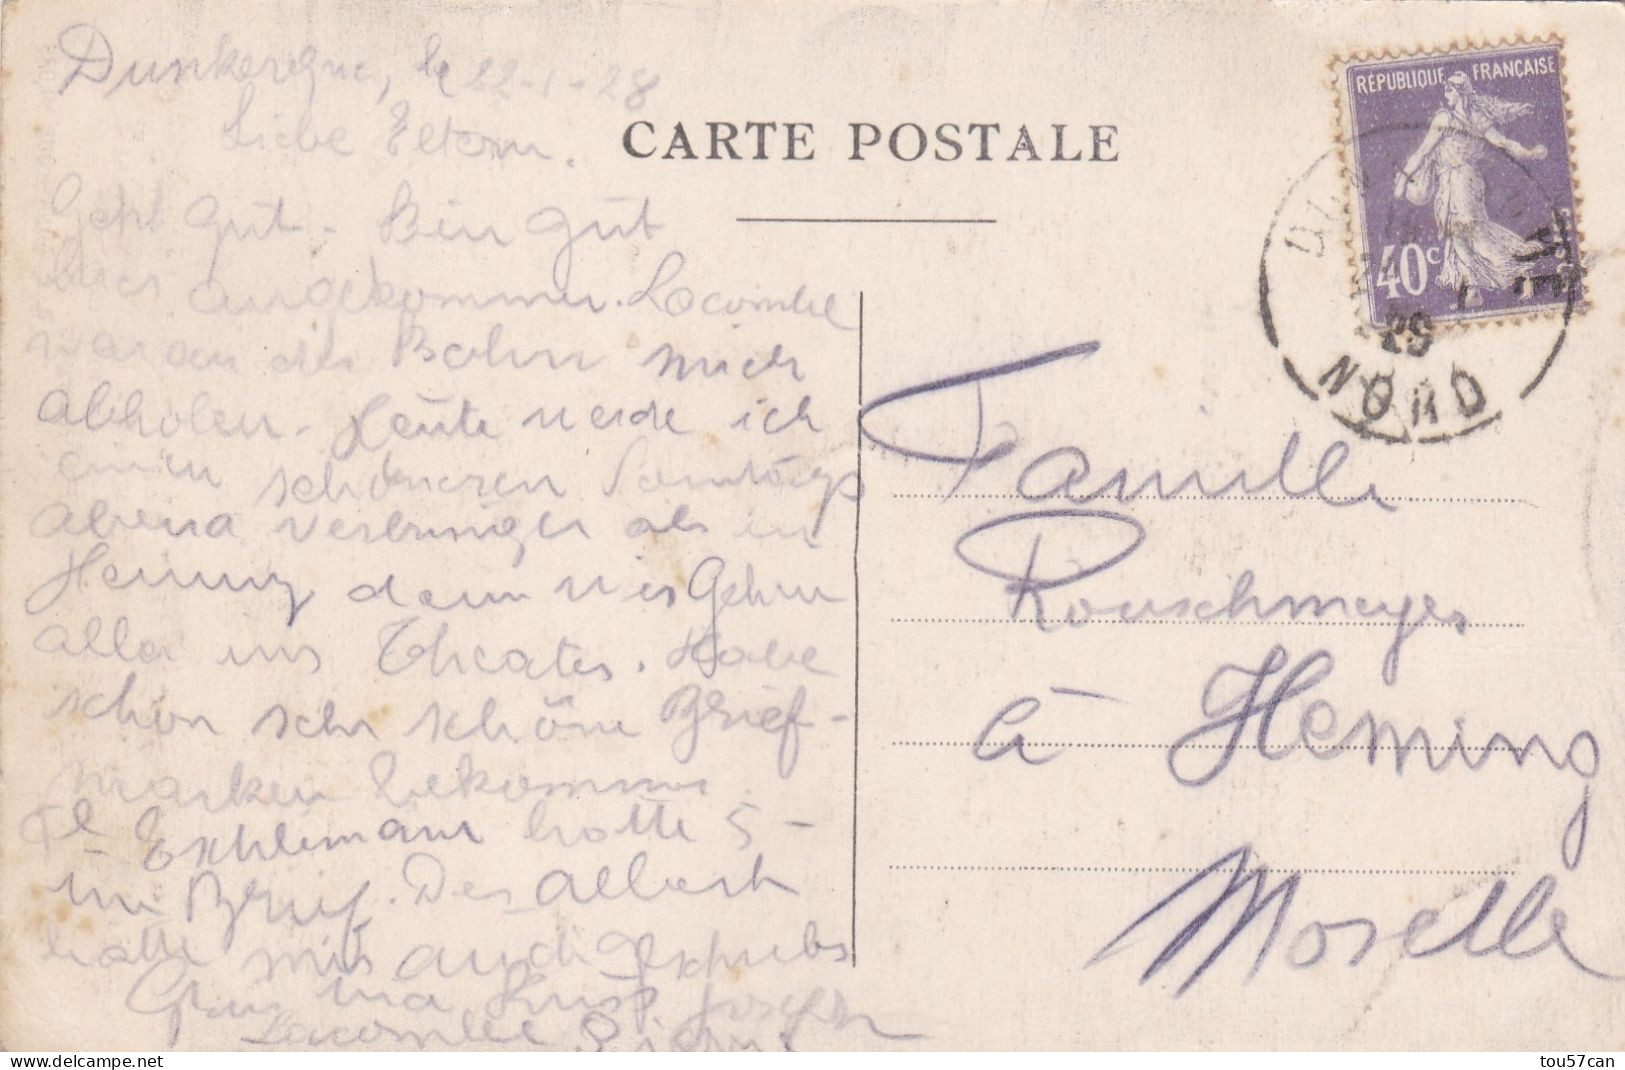 Dunkerque, le 22-1-28
Liebe Eltern.
CARTE POSTALE
Geht gut. Bin gut
hier angekommen. Lacombe
war an der Bahn mich
abholen. Heute werde ich
einen schöneren Samstags
abend verbringen als in
Heming denn wir Gehen
alle ins Theater. Habe
schon sehr schöne Brief-
marken bekommen.
hatte 5 -
im Brief. Der Albert
hatte mir auch
Gruss Kuss Joseph
Lacombe Pierre
RÉPUBLIQUE FRANÇAISE
40c
NORD
Famille
Rouschmeyer
à Heming
Moselle
tou57can